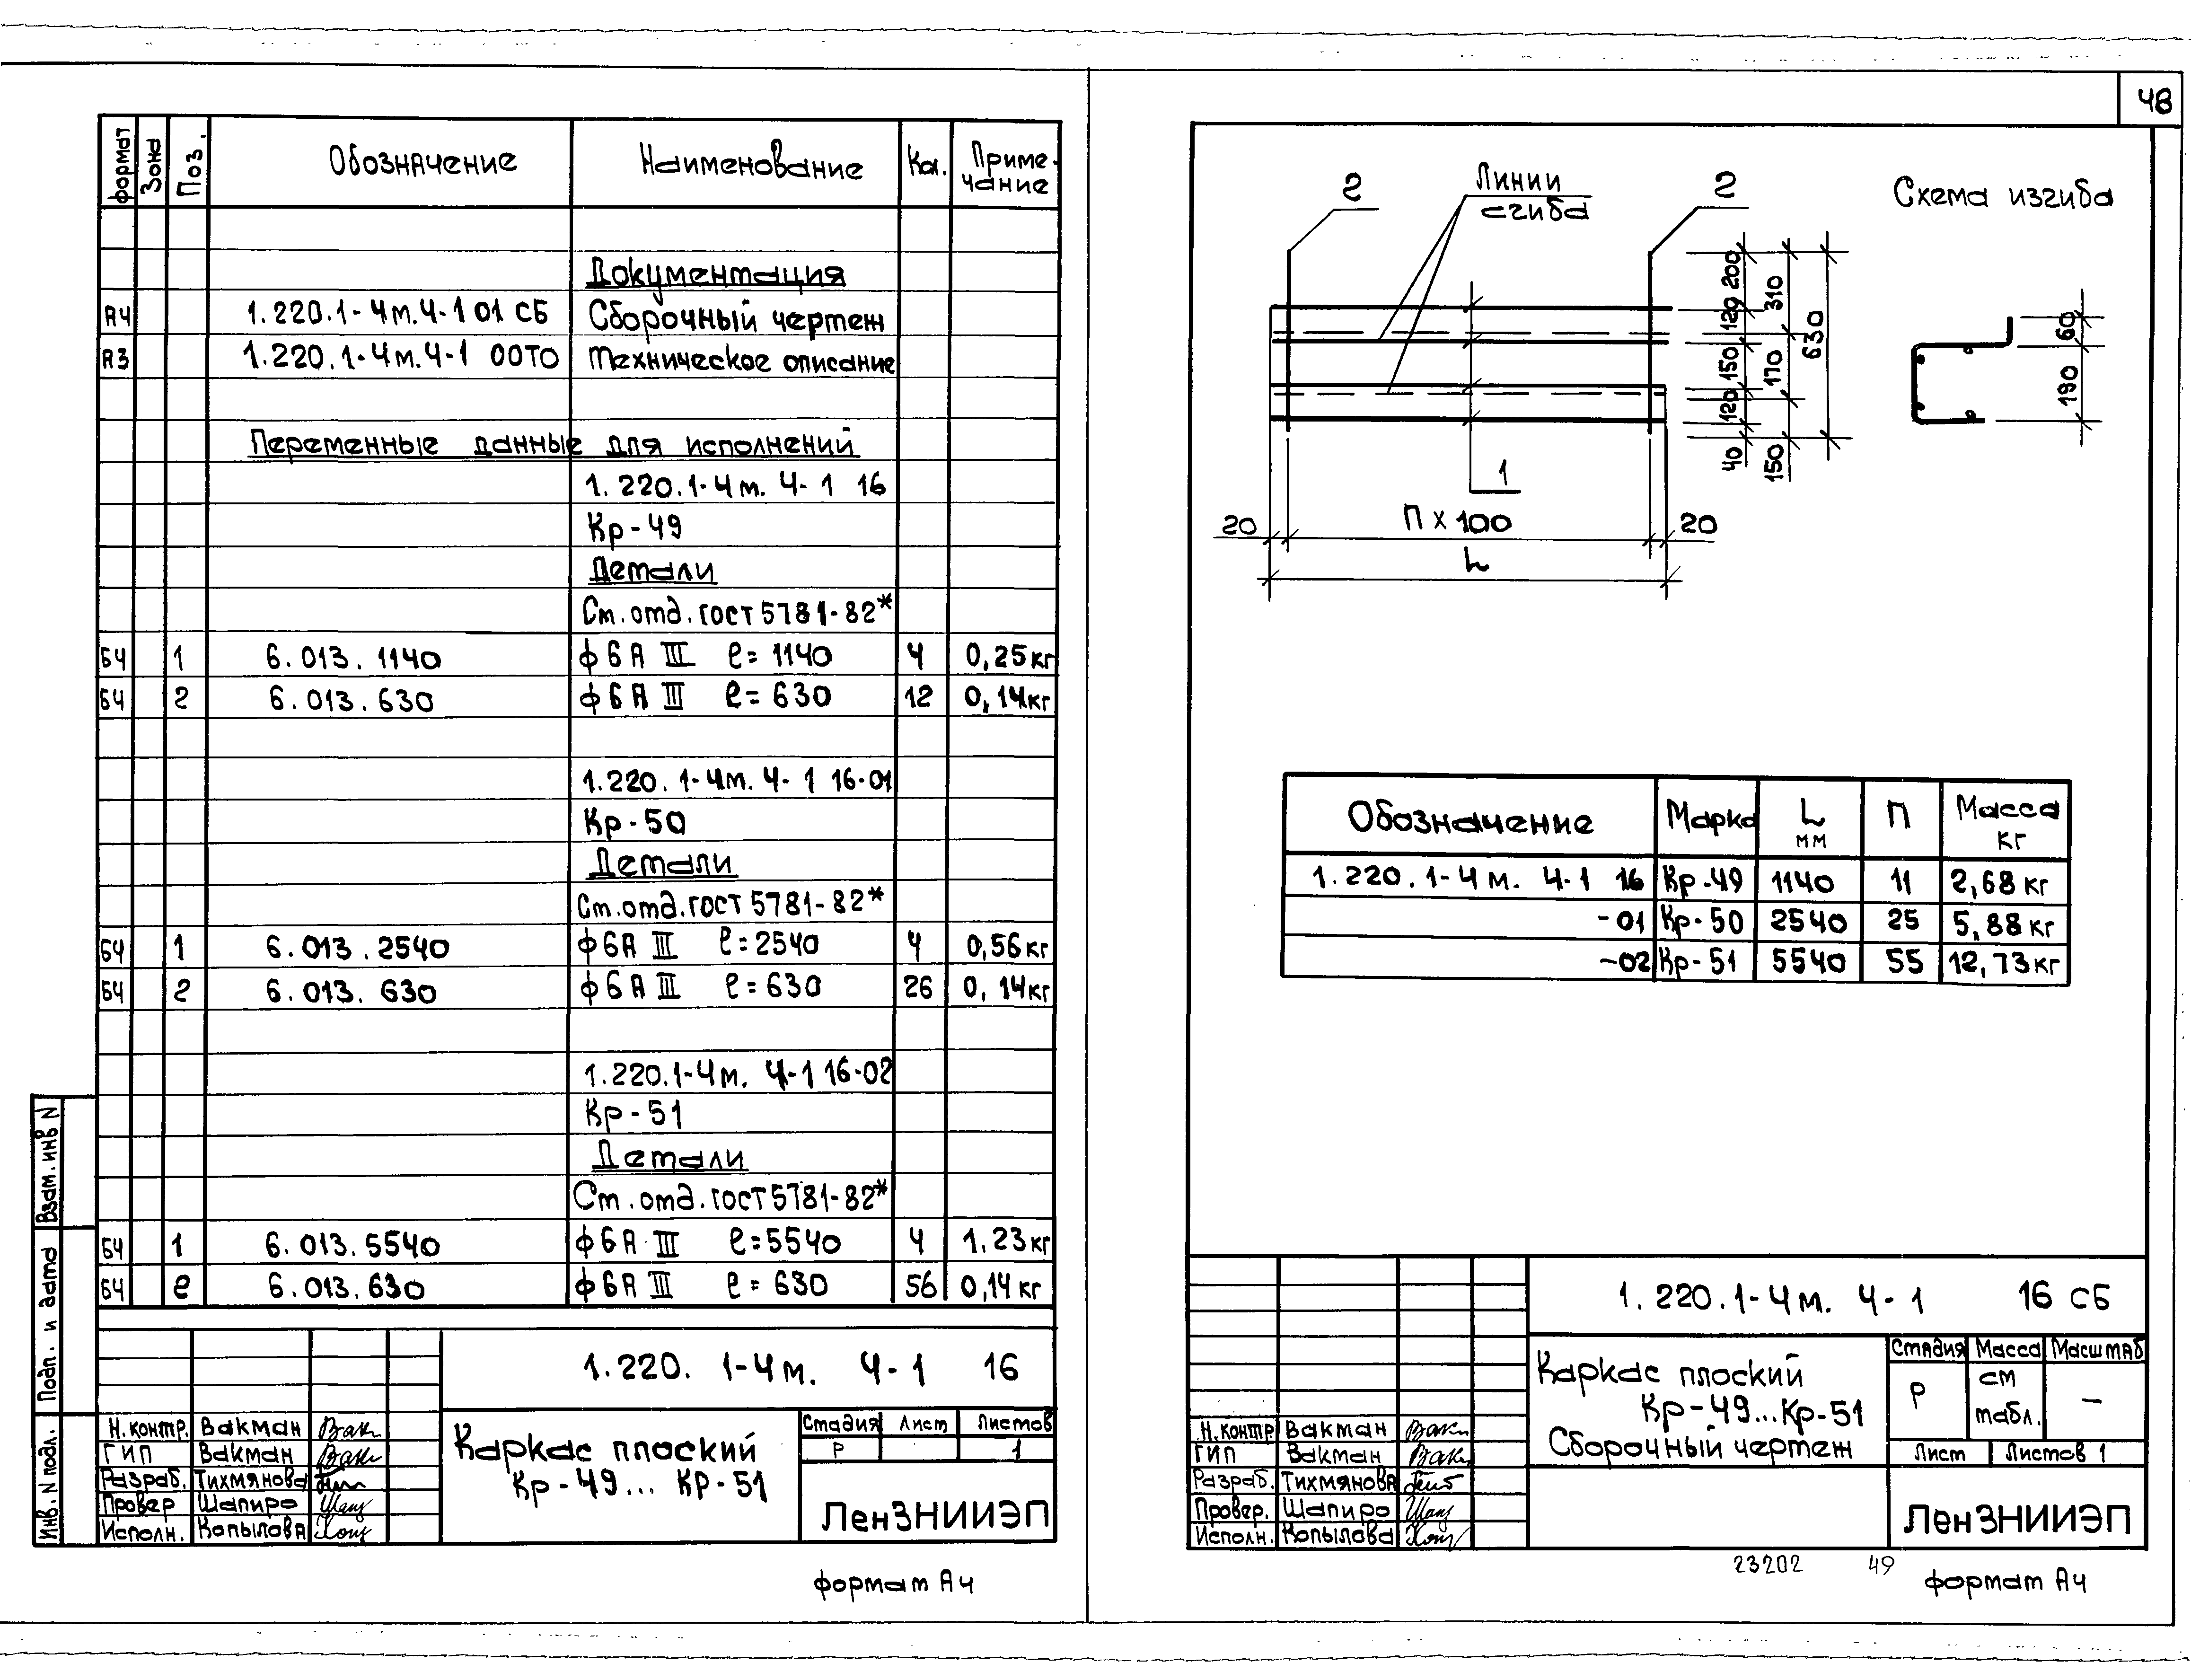 48
формат Зона Поз. Обозначение Наименование Кол. Приме-чание
Документация
А4 1.220.1-4м.4-1 01 СБ Сборочный чертеж
А3 1.220.1-4м.4-1 00ТО Техническое описание
Переменные данные для исполнений
1.220.1-4м. 4-1 16
Кр-49
Детали
Ст.отд.гост 5781-82*
БЧ 1 6.013.1140 ф6АIII ℓ=1140 4 0,25кг
БЧ 2 6.013.630 ф6АIII ℓ=630 12 0,14кг
1.220.1-4м. 4-1 16-01
Кр-50
Детали
Ст.отд.гост 5781-82*
БЧ 1 6.013.2540 ф6АIII ℓ=2540 4 0,56кг
БЧ 2 6.013.630 ф6АIII ℓ=630 26 0,14кг
1.220.1-4м. 4-1 16-02
Кр-51
Детали
Ст.отд.гост 5781-82*
БЧ 1 6.013.5540 ф6АIII ℓ=5540 4 1,23кг
БЧ 2 6.013.630 ф6АIII ℓ=630 56 0,14кг
Взам.инв N
Подп. и дата
Инв. N подл.
1.220. 1-4м. 4-1 16
Н.контр. Вакман
ГИП Вакман
Разраб. Тихмянова
Провер Шапиро
Исполн. Копылова
Каркас плоский
Кр-49... КР-51
Стадия Лист Листов
Р 1
ЛенЗНИИЭП
формат А4
2
Линии
сгиба
2
Схема изгиба
200 120 150 120 40
310 170 150
630
60
190
1
20 П х 100 20
L
Обозначение Марка L мм П Масса кг
1.220.1-4м. 4-1 16 Кр-49 1140 11 2,68кг
-01 Кр-50 2540 25 5,88кг
-02 Кр-51 5540 55 12,73кг
1.220.1-4м. 4-1 16 СБ
Н.контр Вакман
ГИП Вакман
Разраб. Тихмянова
Провер. Шапиро
Исполн. Копылова
Каркас плоский
Кр-49...Кр-51
Сборочный чертеж
Стадия Масса Масштаб
Р см табл. —
Лист Листов 1
ЛенЗНИИЭП
23202 49
формат А4